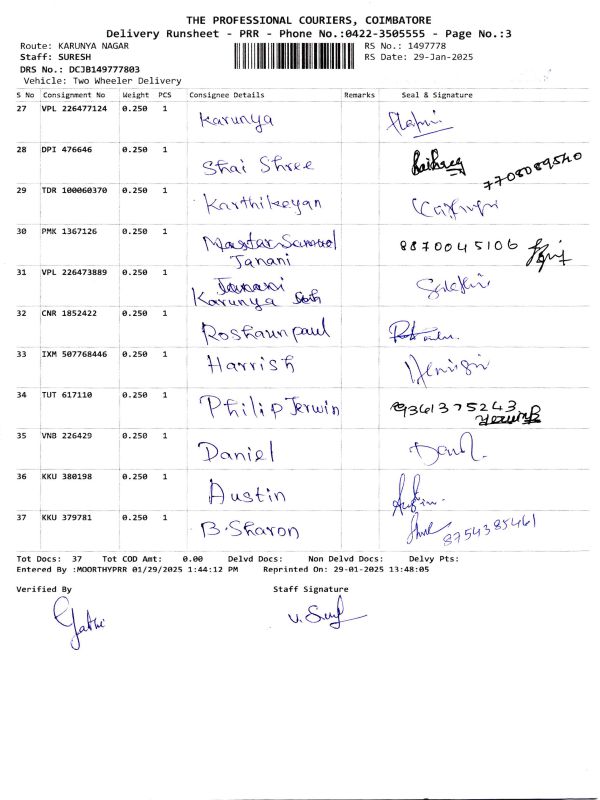 THE PROFESSIONAL COURIERS, COIMBATORE
Delivery Runsheet - PRR - Phone No.:0422-3505555 - Page No.:3
Route: KARUNYA NAGAR
RS No.: 1497778
Staff: SURESH
RS Date: 29-Jan-2025
DRS No.: DCJB149777803
Vehicle: Two Wheeler Delivery
S No Consignment No Weight PCS Consignee Details Remarks Seal & Signature
27 VPL 226477124 0.250 1 Karunya
28 DPI 476646 0.250 1 Shai Shree 7708089540
29 TDR 100060370 0.250 1 Karthikeyan
30 PMK 1367126 0.250 1 Master Samuel 8870045106
Janani
31 VPL 226473889 0.250 1 Janani
Karunya
32 CNR 1852422 0.250 1 Roshaun paul
33 IXM 507768446 0.250 1 Harrish
34 TUT 617110 0.250 1 Philip Jerwin 9361375243
35 VNB 226429 0.250 1 Daniel
36 KKU 380198 0.250 1 Austin
37 KKU 379781 0.250 1 B.Sharon 8754385461
Tot Docs: 37 Tot COD Amt: 0.00 Delvd Docs: Non Delvd Docs: Delvy Pts:
Entered By :MOORTHYPRR 01/29/2025 1:44:12 PM Reprinted On: 29-01-2025 13:48:05
Verified By Staff Signature